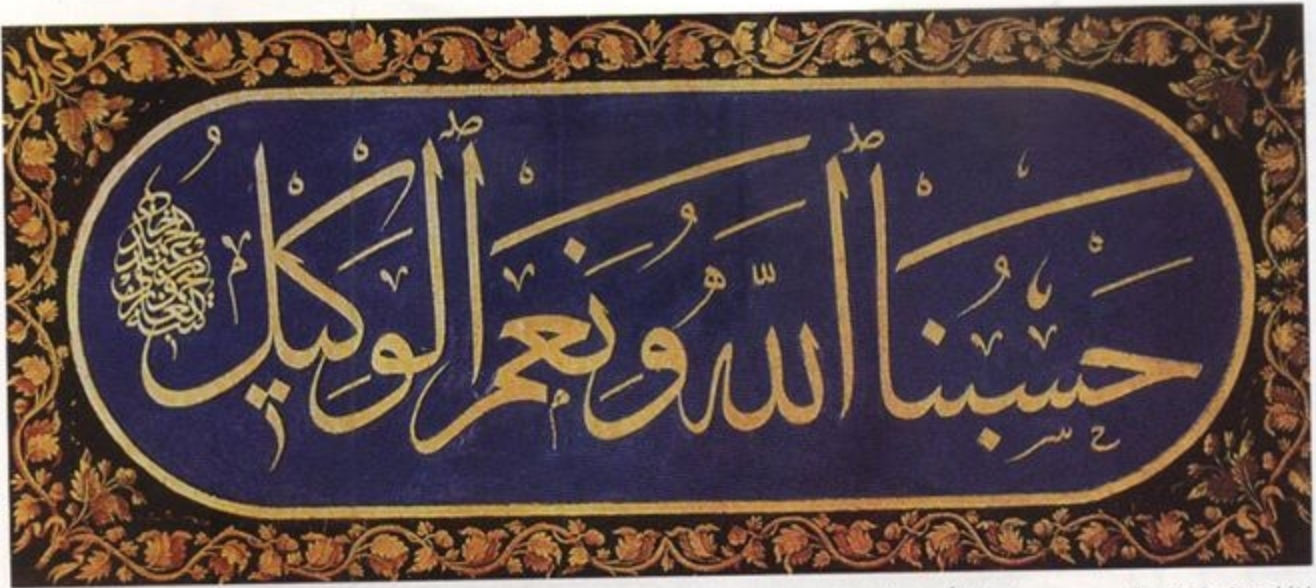 حَسْبُنَا ٱللَّهُ وَنِعْمَ ٱلْوَكِيلُ